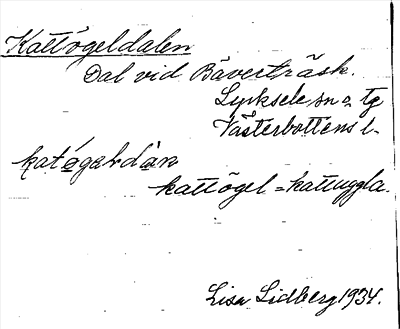 Kattögeldalen
Dal vid Bäverträsk.
Lycksele sn o. tg
Västerbottens l.
kattögel = kattuggla.
Lisa Lidberg 1934.